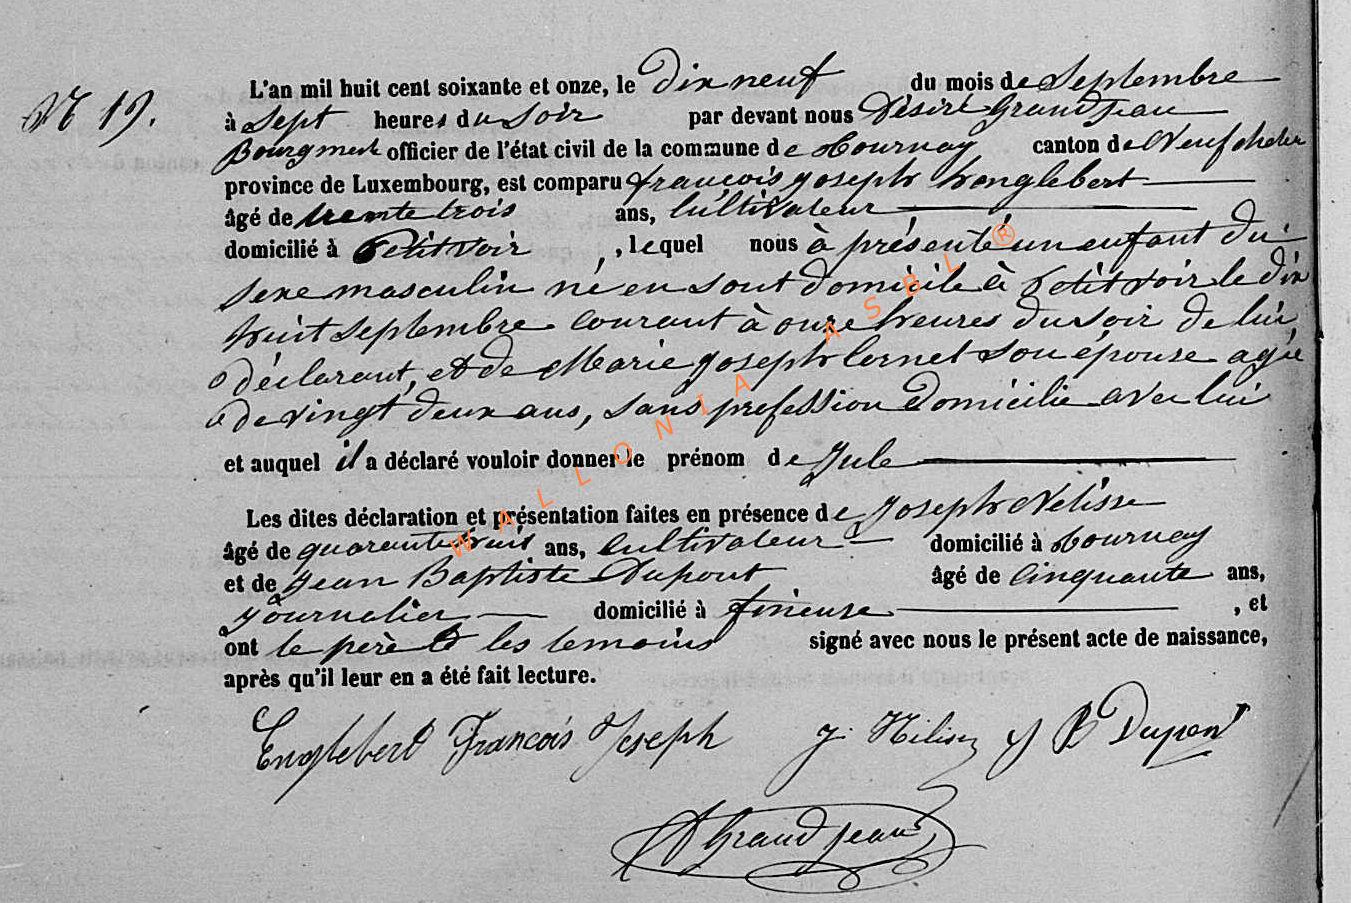 N° 19.
L'an mil huit cent soixante et onze, le dix neuf du mois de Septembre
à Sept heures du soir par devant nous Désiré Grandjean
Bourgmestre officier de l'état civil de la commune de Tournay canton de Neufchateau
province de Luxembourg, est comparu françois joseph Honglebert
âgé de trente trois ans, cultivateur
domicilié à Petitvoir , lequel nous à présenté un enfant du
sexe masculin né en sont domicile à Petitvoir le dix
huit Septembre courant à onze heures du soir de lui
déclarant, et de Marie joseph Cornet son épouse agée
de vingt deux ans, sans profession domicilié avec lui
et auquel il a déclaré vouloir donner le prénom de Jule
Les dites déclaration et présentation faites en présence de Joseph Nelisse
âgé de quarante huit ans, cultivateur domicilié à Tournay
et de Jean Baptiste Dupont âgé de cinquante ans,
journalier domicilié à fineuse , et
ont le père et les temoins signé avec nous le présent acte de naissance,
après qu'il leur en a été fait lecture.
Englebert François Joseph J. Nilisse J B Dupont
D Grandjean
WALLONIA ASBL ®